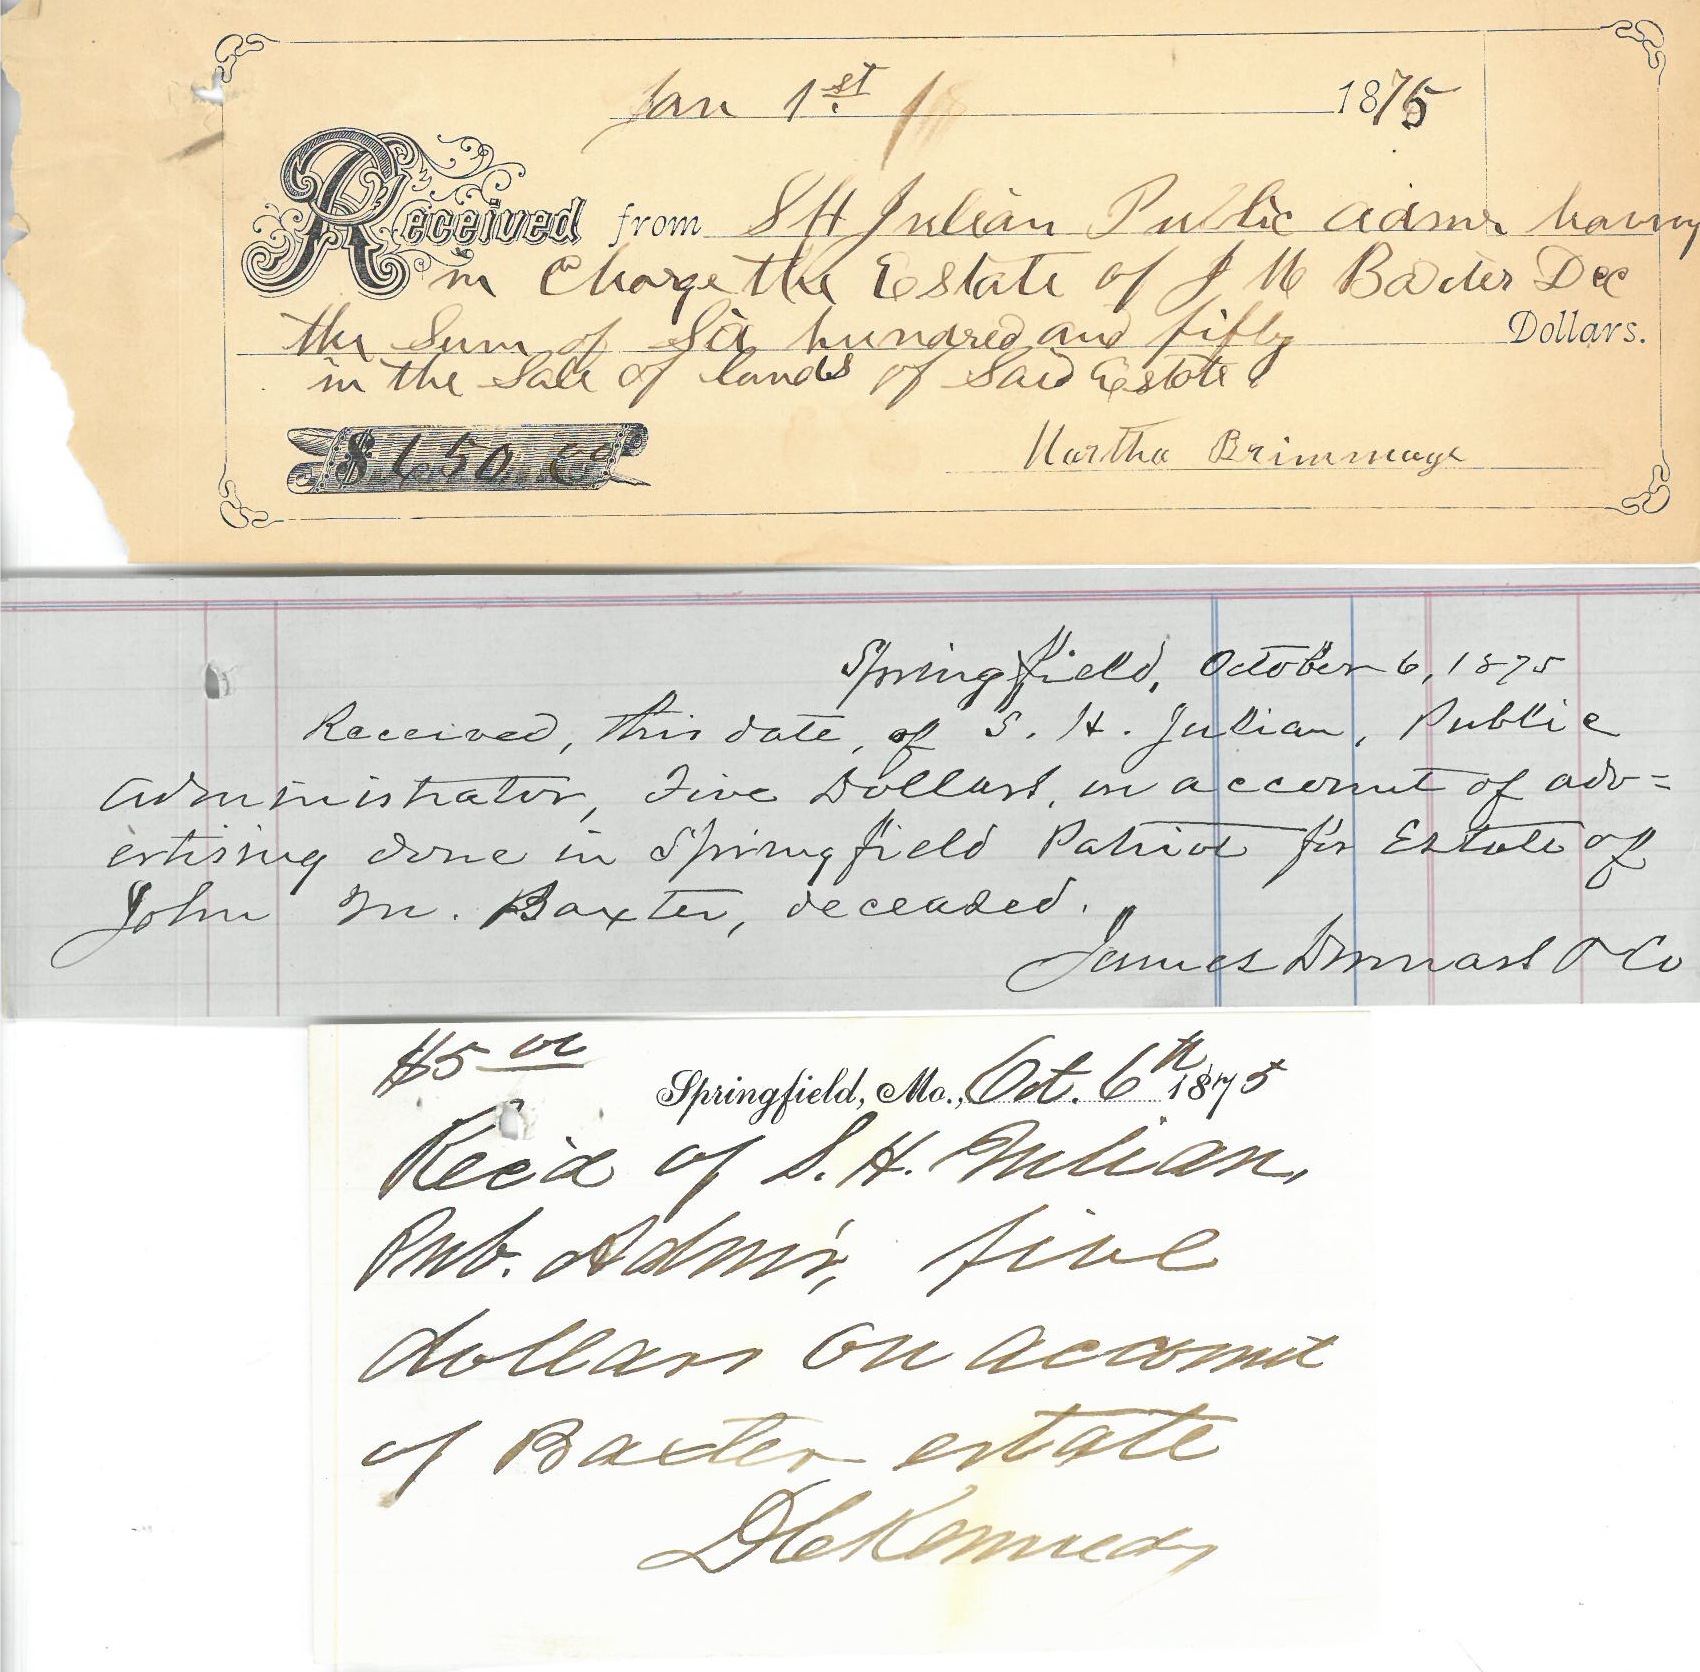 Jan 1st 1875
Received from S H Julian Public Admr having
in Charge the Estate of J M Baxter Dec
the Sum of Six hundred and fifty Dollars.
in the Sale of lands of Said Estate.
$650.00
Martha Brimmage
Springfield, October 6, 1875
Received, this date, of S. H. Julian, Public
Administrator, Five Dollars, on account of adv=
ertising done in Springfield Patriot for Estate of
John M. Baxter, deceased.
James & Co
$5 00
Springfield, Mo., Oct. 6th 1875
Rec'd of S. H. Julian,
Pub. Adm'r, five
dollars on account
of Baxter estate
D C Kennedy